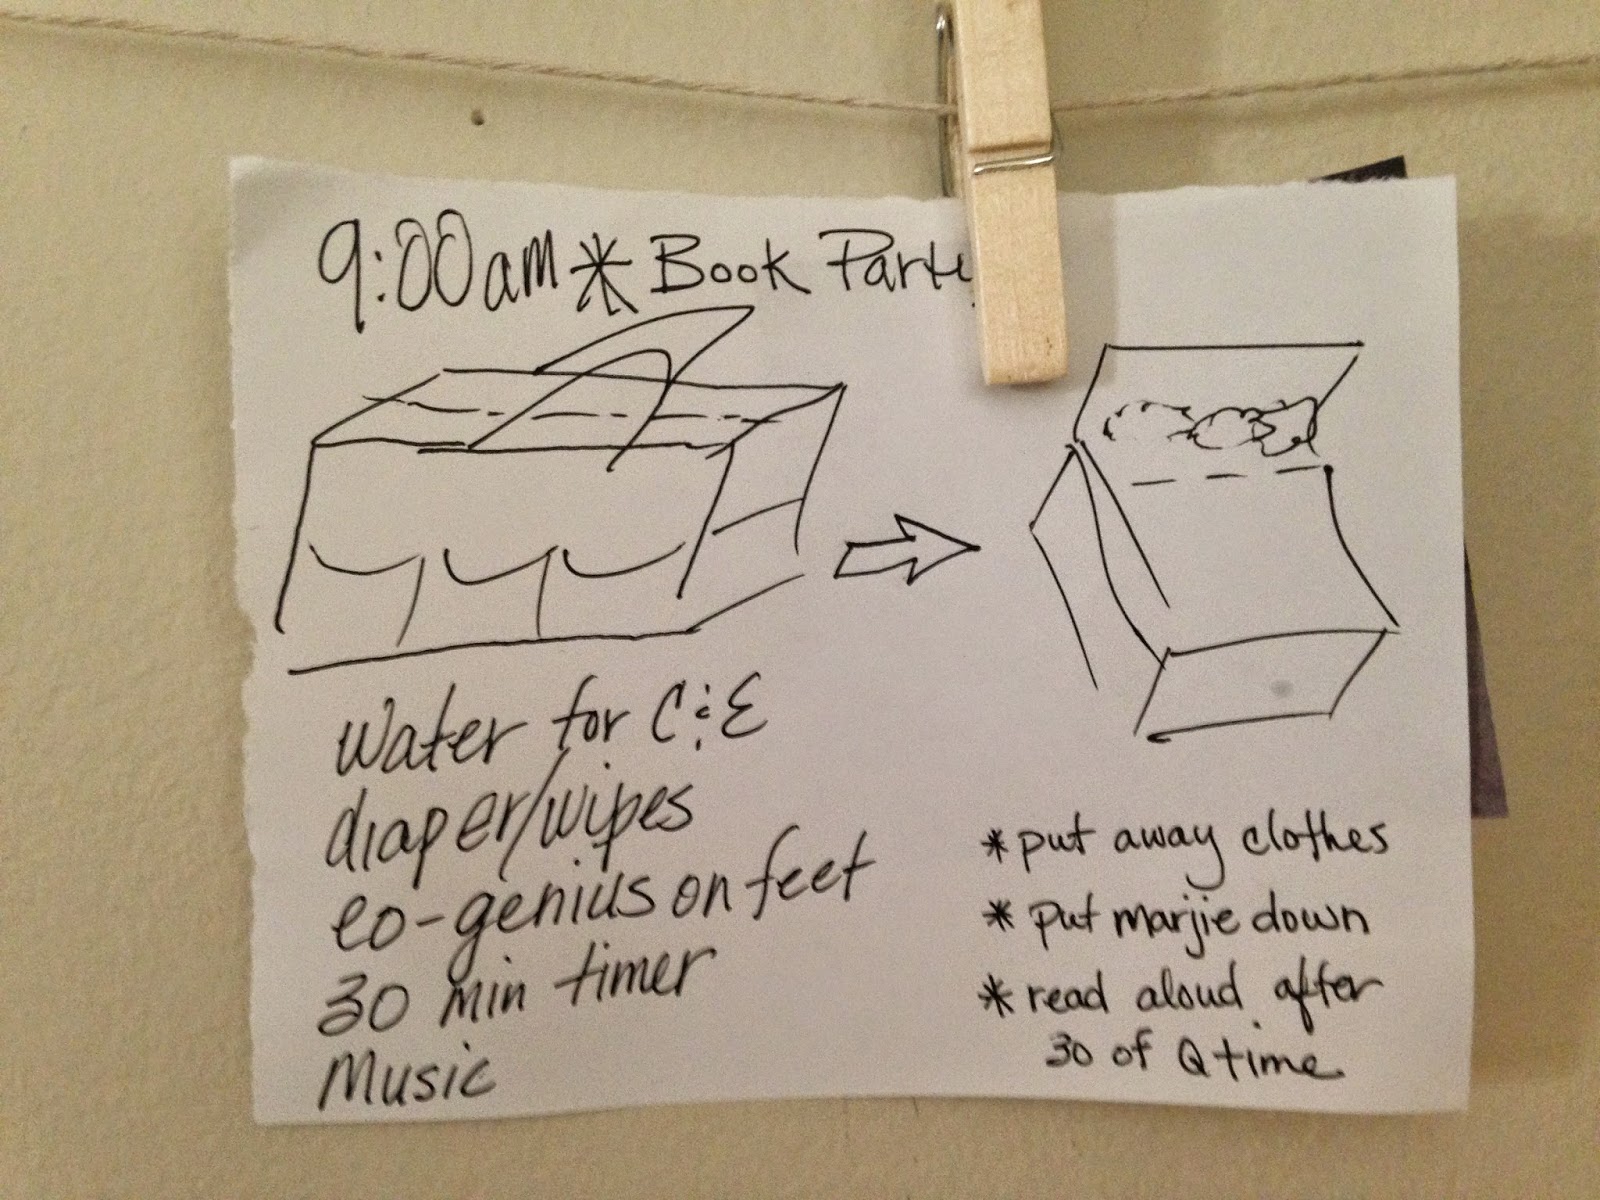 9:00am * Book Party
Water for C & E
diaper/wipes
eo-genius on feet
30 min timer
Music
* put away clothes
* put marjie down
* read aloud after
30 of Q time